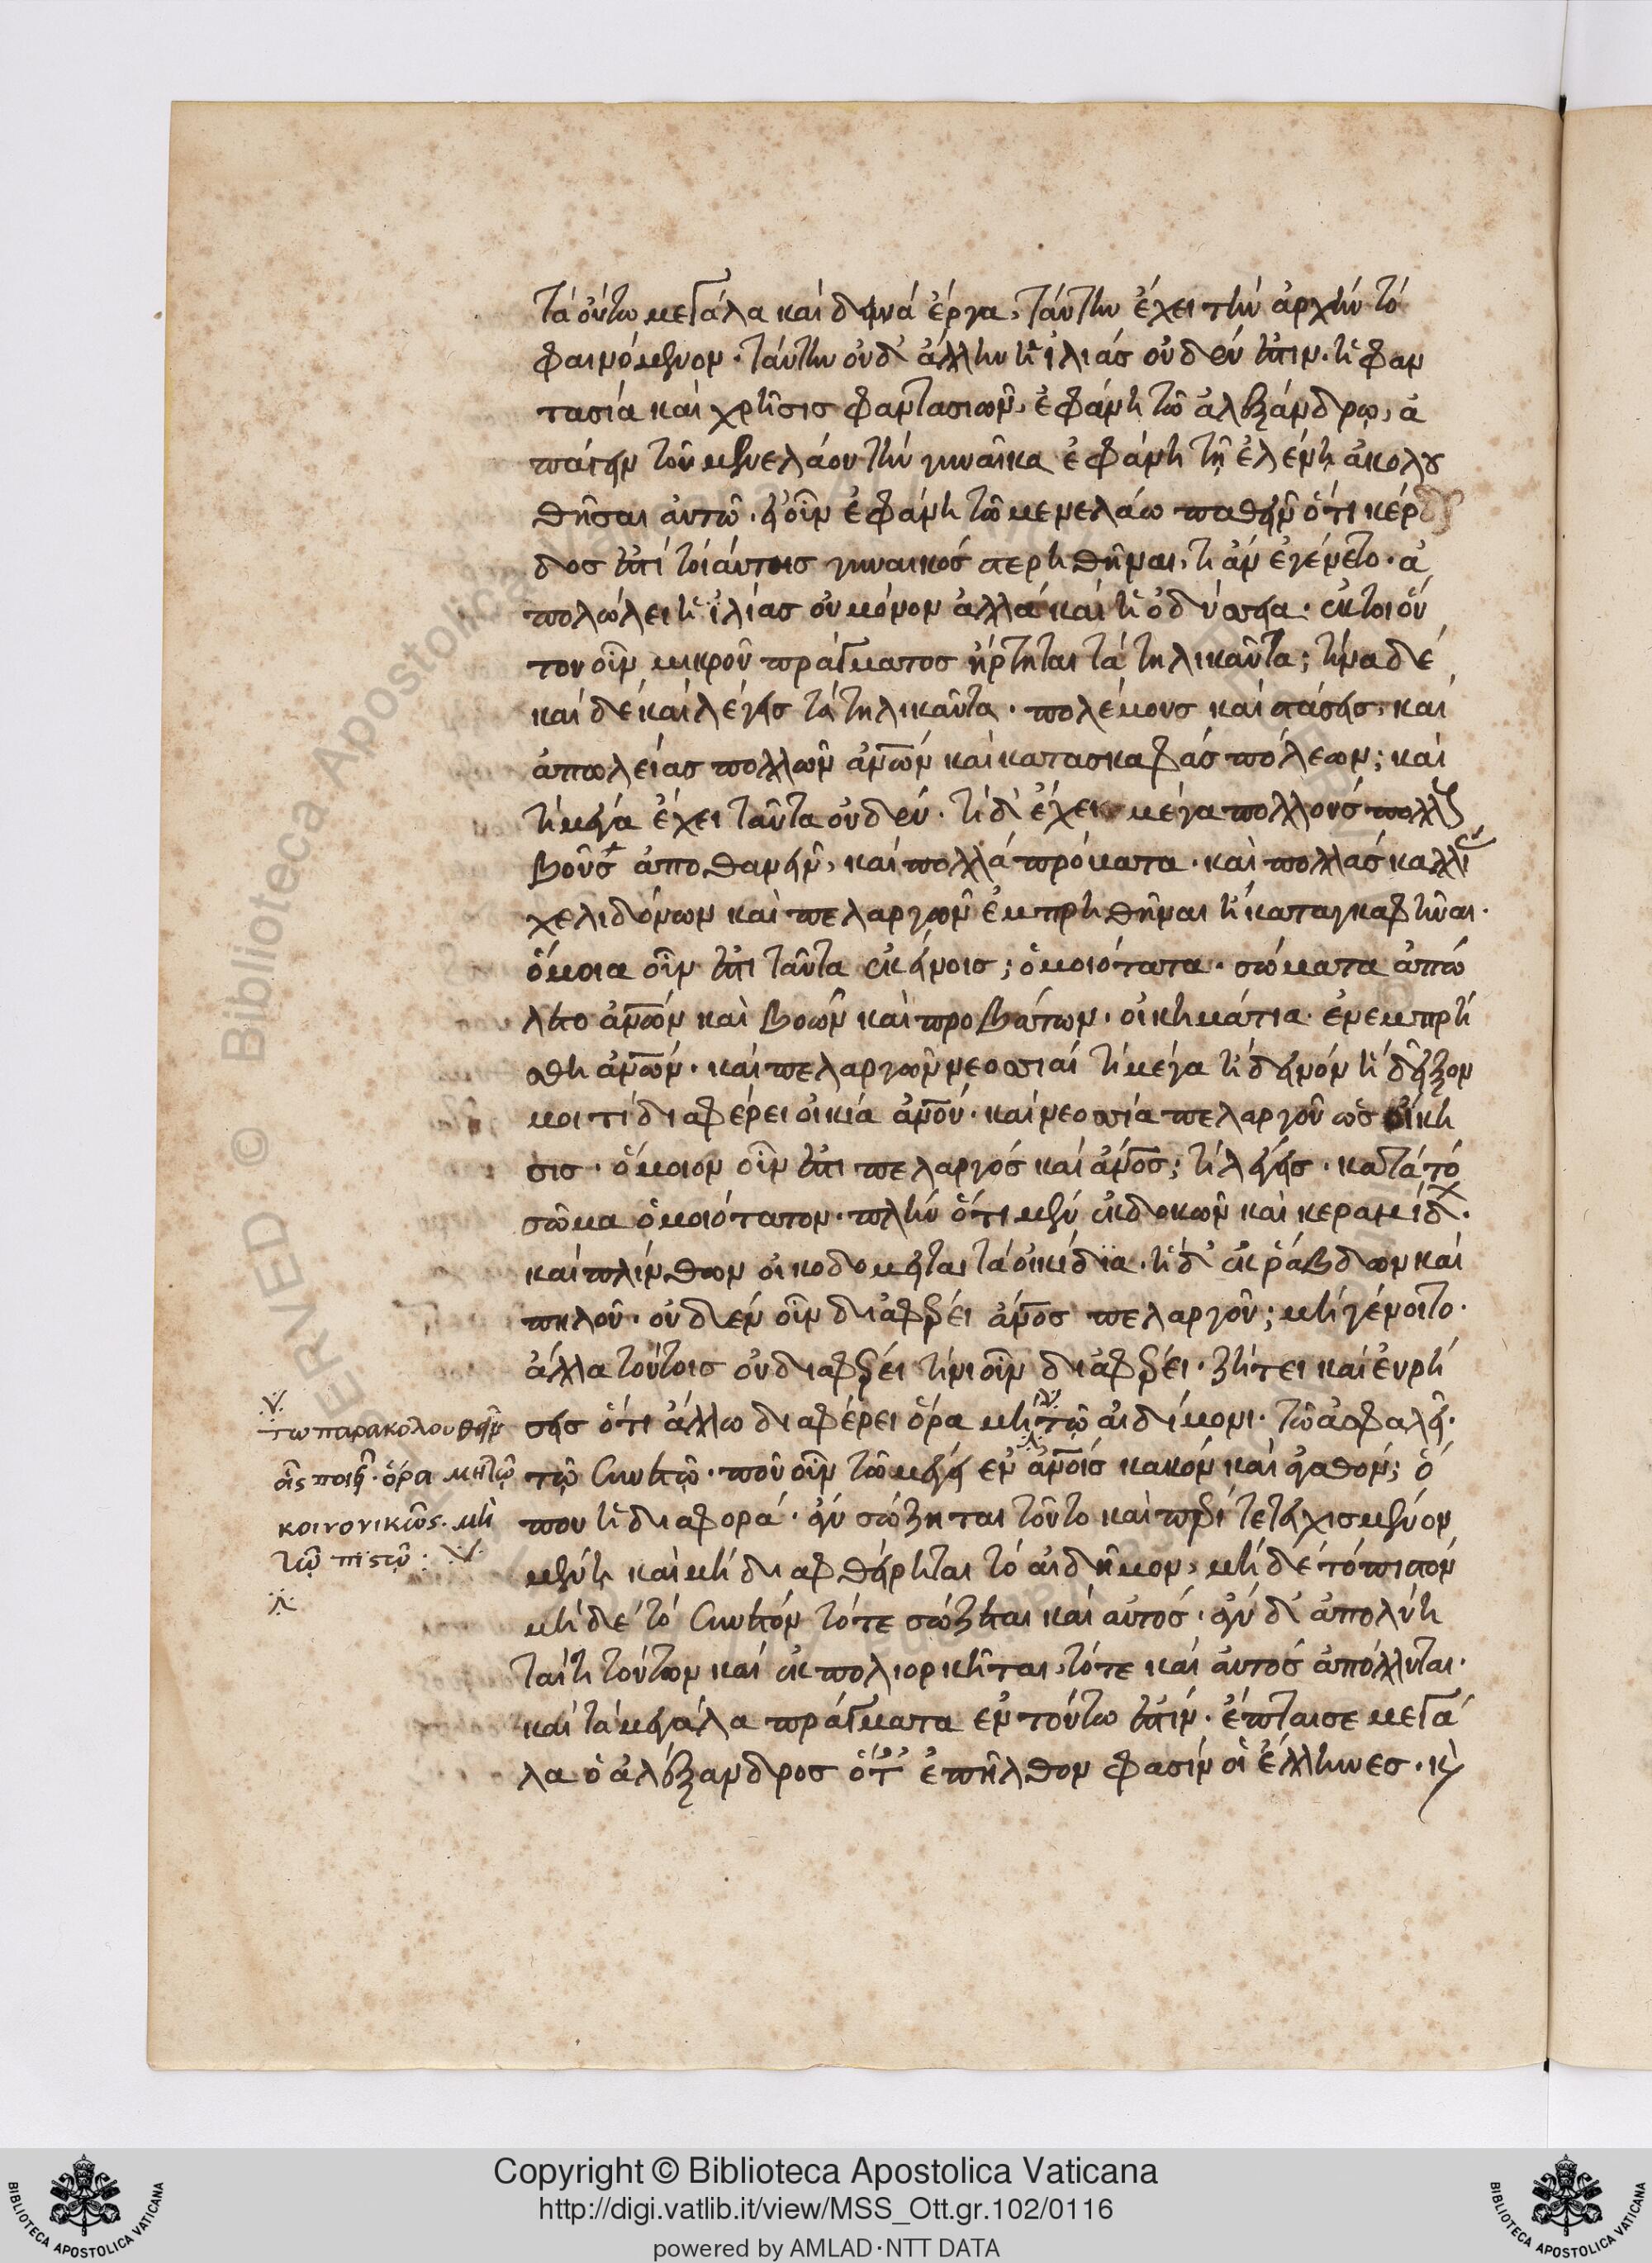 τὰ οὕτω μεγάλα καὶ δεινὰ ἔργα, ταύτην ἔχει τὴν ἀρχὴν τὸ
φαινόμενον· ταύτην οὐδ' ἄλλην ἡ ἰλιὰς οὐδέν ἐστιν. ἡ φαν
τασία καὶ χρῆσις φαντασιῶν, ἐφάνη τῶ ἀλεξάνδρῳ, ἀ
πάγειν τοῦ μενελάου τὴν γυναῖκα ἐφάνη τῇ ἑλένῃ ἀκολου
θῆσαι ἀυτῶ. εἰ οὖν ἐφάνη τῶ μενελάω παθεῖν ὅτι κέρ
δος ἐστὶ τοιάυτοις γυναικὸς στερηθῆναι, τὶ ἂν ἐγένετο. ἀ
πολώλει ἡ ἰλίας οὐ μόνον ἀλλὰ καὶ ἡ ὀδύσσεια. ἐκ τοιού
του οὖν μικροῦ πράγματος ἤρτηται τὰ τηλικαῦτα; τίνα δὲ
καὶ δὲ καὶ λέγεις τὰ τηλικαῦτα. πολέμους καὶ στάσεις, καὶ
ἀπωλείας πολλῶν ἀνων καὶ κατασκαφὰς πόλεων; καὶ
τί μέγα ἔχει ταῦτα οὐδέν. τί δ' ἔχει μέγα πολλοὺς πολλ
βοῦς ἀποθανεῖν, καὶ πολλὰ πρόματα. καὶ πολλὰς καλλι
χελιδόνων καὶ πελαργῶν ἐμπρηθῆναι ἢ καταγκαφῆναι.
ὅμοια οὖν ἐστι ταῦτα ἐκείνοις; ὁμοιότατα. σώματα ἀπώ
λετο ἀνων καὶ βοῶν καὶ προβάτων. οἰκημάτια ἐνεμπρή
σθη ἀνων. καὶ πελαργῶν νεοσσιαί τί μέγα ἢ δεινόν ἢ δεῖξον
μοι τί διαφέρει οἰκία ἀνου. καὶ νεοσσία πελαργοῦ ὡς οἴκη
σις. ὅμοιον οὖν ἐστι πελαργὸς καὶ ἀνος; τί λέγεις. κατὰ τὸ
σῶμα ὁμοιότατον. πλὴν ὅτι μὲν ἐκ δοκῶν καὶ κεραμίδ.
καὶ πλίνθων οἰκοδομεῖται τὰ οἰκίδϊα. ἡ δ' ἐκ ῥάβδων καὶ
πηλοῦ. οὐδὲν οὖν διαφέρει ἀνος πελαργοῦ; μὴ γένοιτο.
ἀλλὰ τούτοις οὐ διαφέρει τίνι οὖν διαφέρει. ζήτει καὶ ἑυρή
σεις ὅτι ἄλλω διαφέρει ὅρα μὴ τῷ αἰδήμονι. τῶ ἀσφαλεῖ.
τῷ συνετῷ. ποῦ οὖν τὸ μέγα ἐν ἀνοις κακὸν καὶ ἀγαθόν; ὅ
που ἡ διαφορά. ἂν σώζηται τοῦτο καὶ περι τετειχισμένον
μένῃ καὶ μὴ διαφθείρηται τὸ αἰδῆμον, μὴ δὲ τὸ πιστὸν
μὴ δὲ τὸ συνετόν τότε σώζεται καὶ αὐτός. ἂν δ' ἀπολύη
ται τὶ τούτων καὶ ἐκπολιορκῆται, τότε καὶ ἀυτὸς ἀπόλλυται.
καὶ τὰ μεγάλα πράγματα ἐν τούτω ἐστίν. ἔπταισε μεγά
λα ὁ ἀλέξανδρος ὅτ' ἐπῆλθον φασὶν οἱ ἕλληνες. κ
τω παρακολουθεῖν
οἷς ποιεῖ. ὅρα μὴ τῷ
κοινονικῶς. μὴ
τῷ πιστῷ:
Copyright © Biblioteca Apostolica Vaticana
http://digi.vatlib.it/view/MSS_Ott.gr.102/0116
powered by AMLAD·NTT DATA
BIBLIOTECA APOSTOLICA VATICANA
BIBLIOTECA APOSTOLICA VATICANA